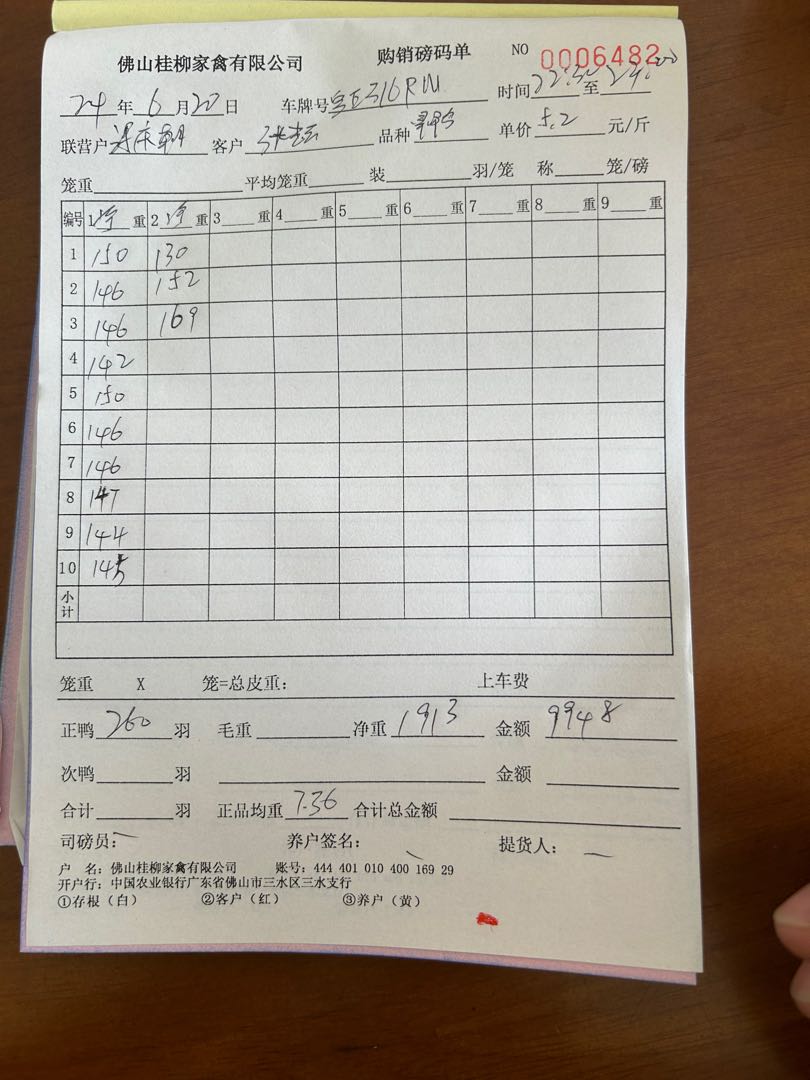 佛山桂柳家禽有限公司 购销磅码单 NO 0006482
24年6月20日 车牌号 316 时间22:30至
联营户 客户 品种 单价5.2元/斤
笼重 平均笼重 装 羽/笼 称 笼/磅
编号 1净重 2净重 3 重 4 重 5 重 6 重 7 重 8 重 9 重
1 150 130
2 146 152
3 146 169
4 142
5 150
6 146
7 146
8 147
9 144
10 145
小计
笼重 X 笼=总皮重: 上车费
正鸭260羽 毛重 净重1913 金额9948
次鸭 羽 金额
合计 羽 正品均重7.36 合计总金额
司磅员: 养户签名: 提货人:
户 名: 佛山桂柳家禽有限公司 账号: 444 401 010 400 169 29
开户行: 中国农业银行广东省佛山市三水区三水支行
①存根（白） ②客户（红） ③养户（黄）